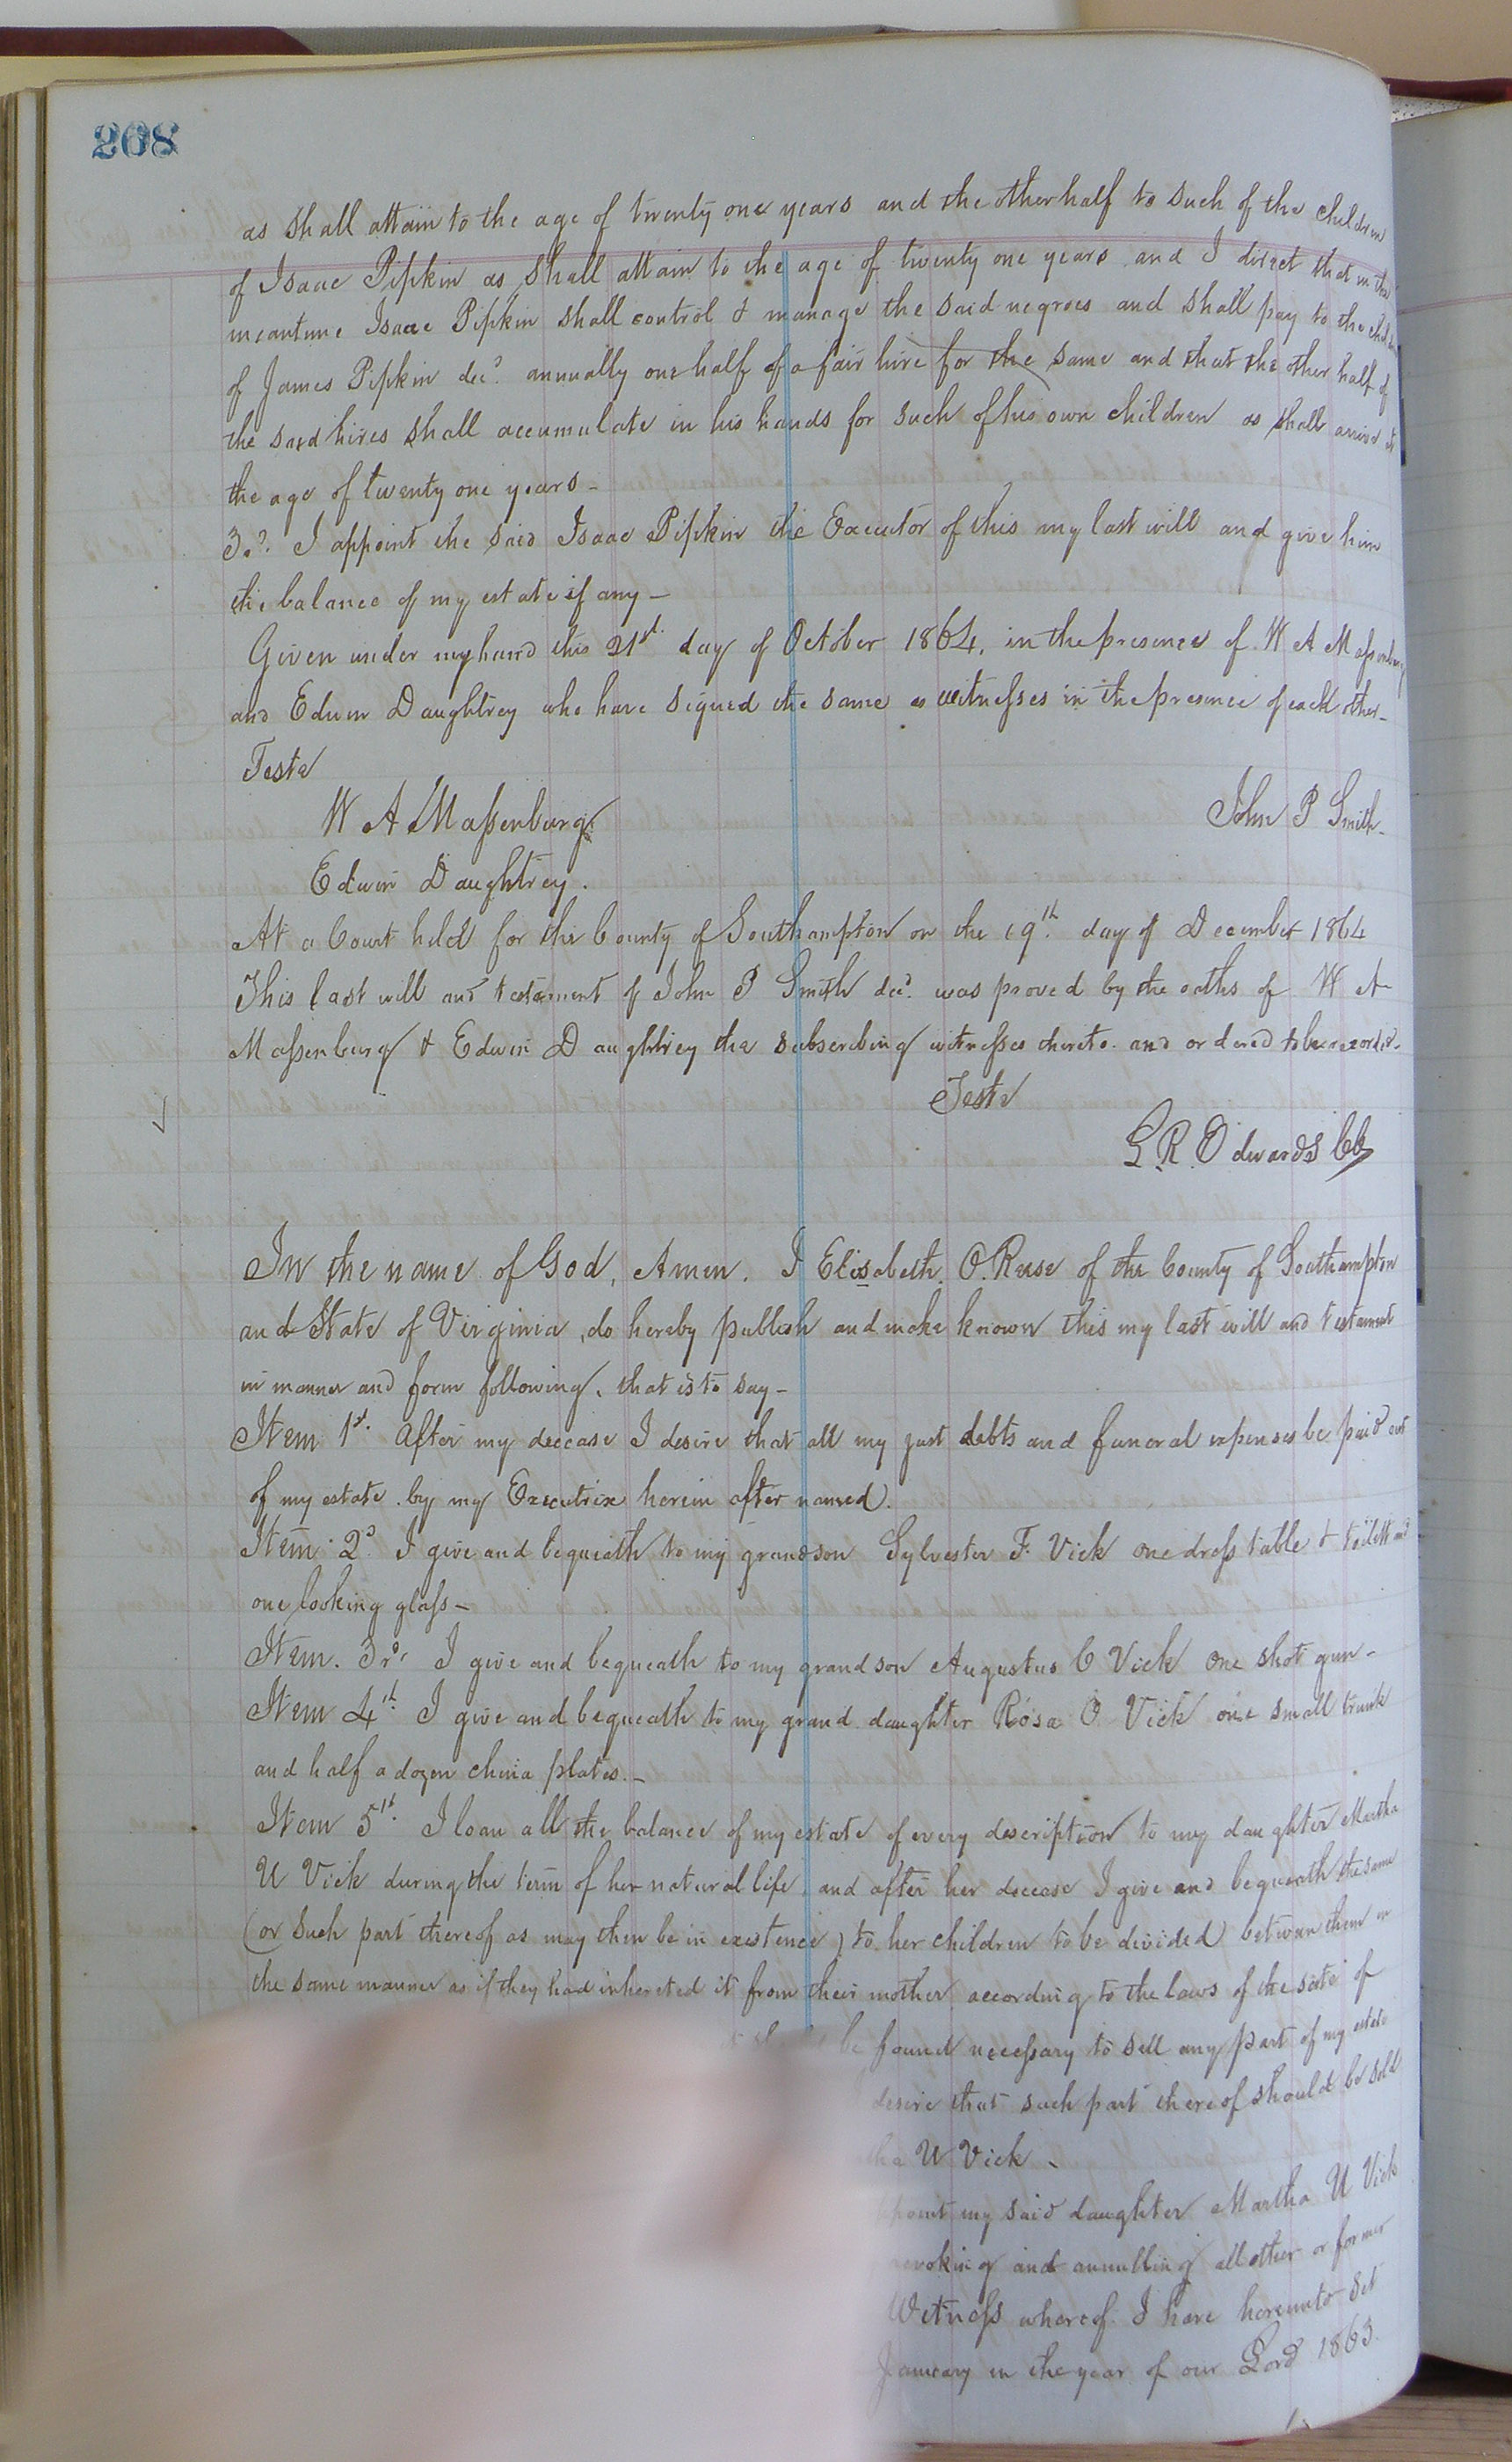 208
as shall attain to the age of twenty one years and the other half to such of the children
of Isaac Pipkin as shall attain to the age of twenty one years and I direct that in the
meantime Isaac Pipkin shall control & manage the said negroes and shall pay to the children
of James Pipkin decd. annually one half of a fair hire for the same and that the other half of
the said hires shall accumulate in his hands for such of his own children as shall arrive at
the age of twenty one years -
3rd. I appoint the said Isaac Pipkin the Executor of this my last will and give him
the balance of my estate if any -
Given under my hand this 21st. day of October 1864. in the presence of W A Massenburg
and Edwin Daughtrey who have signed the same as witnesses in the presence of each other -
Teste
W A Massenburg
John P Smith -
Edwin Daughtrey.
At a Court held for the County of Southampton on the 19th. day of December 1864
This last will and testament of John P Smith decd. was proved by the oaths of W A
Massenburg & Edwin Daughtrey the subscribing witnesses thereto. and ordered to be recorded.
Teste
L. R. Edwards Clk
In the name of God, Amen. I Elisabeth O. Reese of the County of Southampton
and State of Virginia, do hereby publish and make known this my last will and testament
in manner and form following, that is to say -
Item 1st. After my decease I desire that all my just debts and funeral expenses be paid out
of my estate. by my Executrix herein after named.
Item. 2d. I give and bequeath to my grandson Sylvester F. Vick one dress table & toilett and
one looking glass -
Item. 3rd. I give and bequeath to my grand son Augustus C Vick one shot gun -
Item 4th. I give and bequeath to my grand daughter Rosa O Vick one small trunk
and half a dozen china plates. -
Item 5th. I loan all the balance of my estate of every description to my daughter Martha
U Vick during the term of her natural life, and after her decease I give and bequeath the same
(or such part thereof as may then be in existence) to her children to be divided between them in
the same manner as if they had inherited it from their mother according to the laws of the state of
be found necessary to sell any part of my estate
desire that such part thereof should be sold
U Vick -
my said daughter Martha U Vick
revoking and annulling all other or former
Witness whereof. I have hereunto set
January in the year of our Lord 1863.